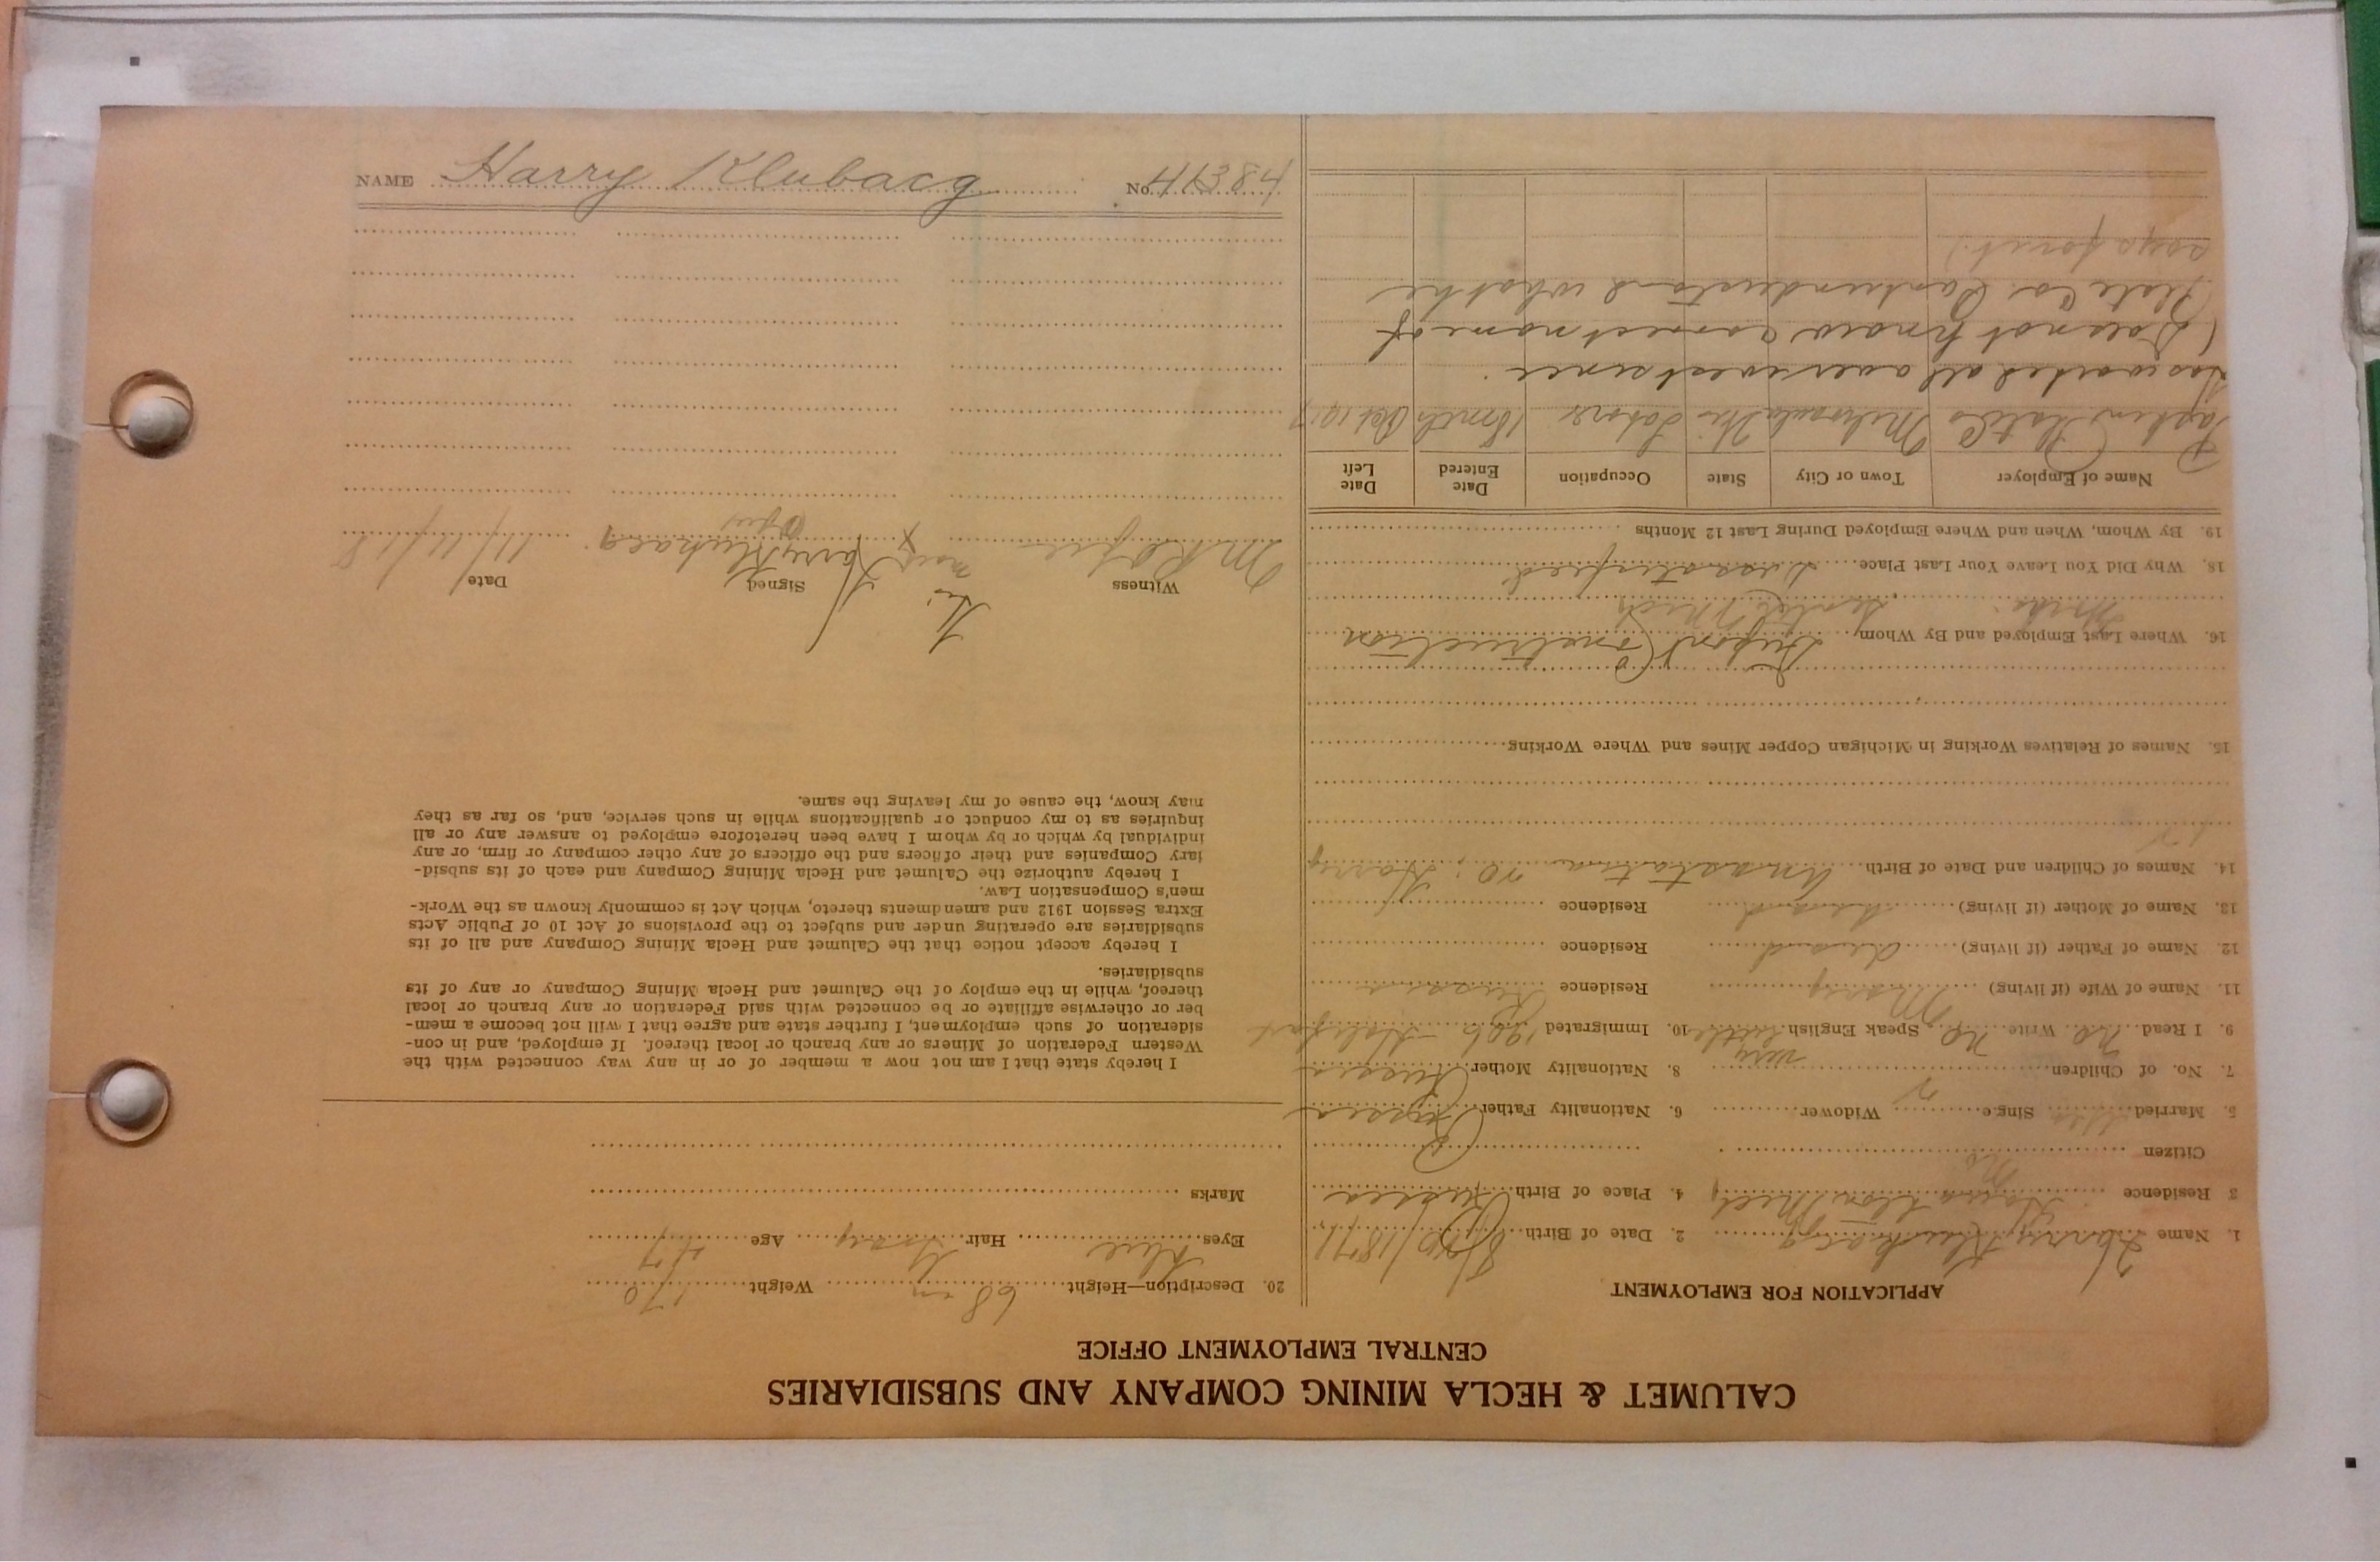 CALUMET & HECLA MINING COMPANY AND SUBSIDIARIES
CENTRAL EMPLOYMENT OFFICE
APPLICATION FOR EMPLOYMENT
1. Name Harry Klubacg 2. Date of Birth 1871
3 Residence 4. Place of Birth Russia
Citizen No
5. Married Yes Single Widower 6. Nationality Father Russia
7. No. of Children 2 8. Nationality Mother Russia
9. I Read no Write no Speak English very little 10. Immigrated 1906
11. Name of Wife (if living) Mary Residence Russia
12. Name of Father (if living) dead Residence
13. Name of Mother (if living) dead Residence
14. Names of Children and Date of Birth Anastatia 20; Harry
12
15. Names of Relatives Working in Michigan Copper Mines and Where Working
16. Where Last Employed and By Whom Dupont Construction
18. Why Did You Leave Your Last Place Dissatisfied
19. By Whom, When and Where Employed During Last 12 Months
Name of Employer Town or City State Occupation Date Entered Date Left
Laborer Oct 1917
Has worked all over west since.
(Does not know correct name of
Plate Co. Cant understand what he
says for it.)
20. Description—Height 68 in Weight 170
Eyes Blue Hair Gray Age 47
Marks
I hereby state that I am not now a member of or in any way connected with the
Western Federation of Miners or any branch or local thereof. If employed, and in con-
sideration of such employment, I further state and agree that I will not become a mem-
ber or otherwise affiliate or be connected with said Federation or any branch or local
thereof, while in the employ of the Calumet and Hecla Mining Company or any of its
subsidiaries.
I hereby accept notice that the Calumet and Hecla Mining Company and all of its
subsidiaries are operating under and subject to the provisions of Act 10 of Public Acts
Extra Session 1912 and amendments thereto, which Act is commonly known as the Work-
men's Compensation Law.
I hereby authorize the Calumet and Hecla Mining Company and each of its subsid-
iary Companies and their officers and the officers of any other company or firm, or any
individual by which or by whom I have been heretofore employed to answer any or all
inquiries as to my conduct or qualifications while in such service, and, so far as they
may know, the cause of my leaving the same.
Witness Signed Date
his
Harry X Klubacg 11/11/18
mark
NAME Harry Klubacg No. 41384